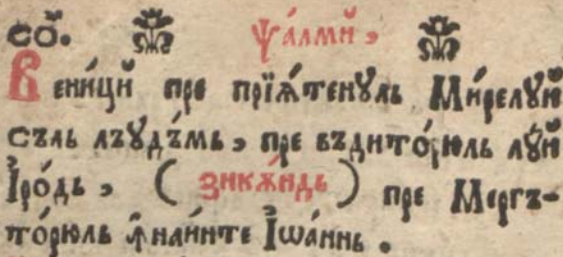 со҃. ѱа́лмй,
Вени́цй пре прїѧ́тенꙋль Ми́релꙋй
съль лъꙋдъ́мь, пре въдито́рюль лꙋ́й
І҆ро́дь, (зикѫ́ндь) пре Мергъ-
то́рюль ꙟ҆наи́нте І҆ѡа́ннь.